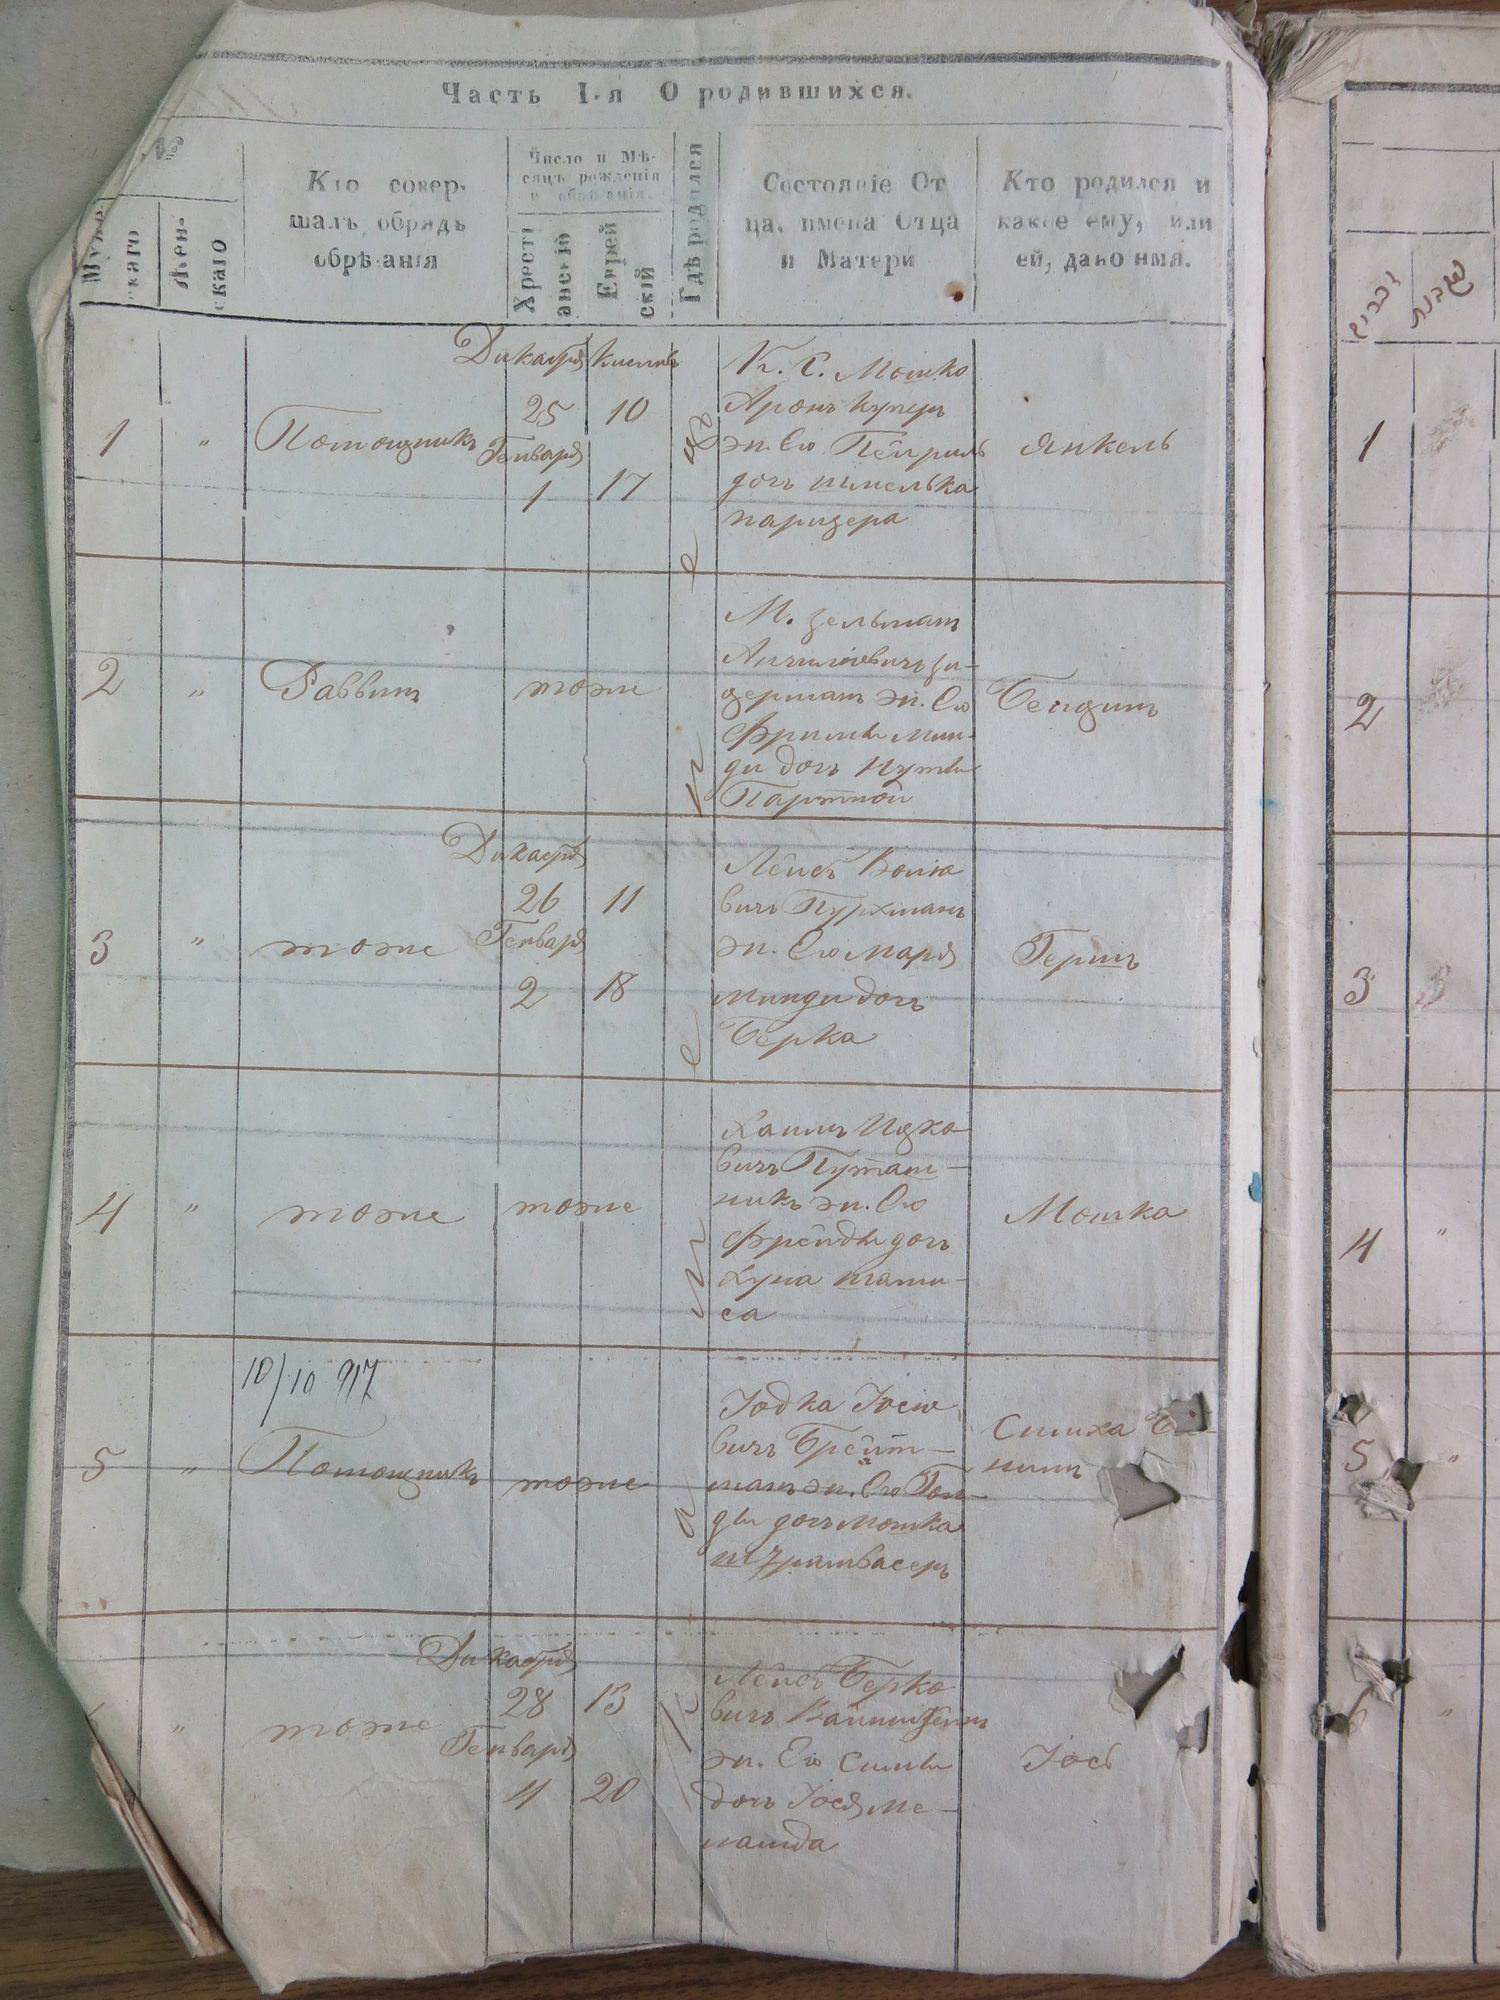 Часть I-я О родившихся.
№
Муже
скаго
Жен-
скаго
Кто совер-
шалъ обрядъ
обрѣзанія
Число и Мѣ-
сяцъ рожденія
и обрѣзанія.
Христі
анскій
Еврей
скій
Гдѣ родился
Состояніе От
ца, имена Отца
и Матери
Кто родился и
какое ему, или
ей, дано имя.
1
"
Помощникъ
Декабря
25
Генваря
1
Кислевъ
10
17
К. С. Мошко
Аронъ Куперъ
жен. Его Пейриль
дочь Шмелька
Паризера
Янкель
2
"
Раввинъ
тоже
М. Зельманъ
дерманъ жен. Его
Фримы Мин-
ди дочь Нуты
Портной
Бенцинъ
3
"
тоже
Декабря
26
Генваря
2
11
18
Лейбъ Волко
вичъ Пурхманъ
жен. Его Маря
Минди дочь
Берка
Гершъ
4
"
тоже
тоже
Хаимъ Ицко
вичъ Путаш-
никъ жен. Его
Фрейды дочь
са
Мошка
10/10 917
5
"
Помощникъ
тоже
Іодка Іосіо
вичъ Брейт-
манъ жен. Его Гол-
ды дочь Мошка
Симха
"
тоже
Декабря
28
Генваря
4
13
20
Лейбъ Берко
вичъ Вайнштейнъ
жен. Его Симы
дочь Іося Ме-
нашда
Іось
זכרים
נקבות
1
2
3
3
4
"
5
"
6
"